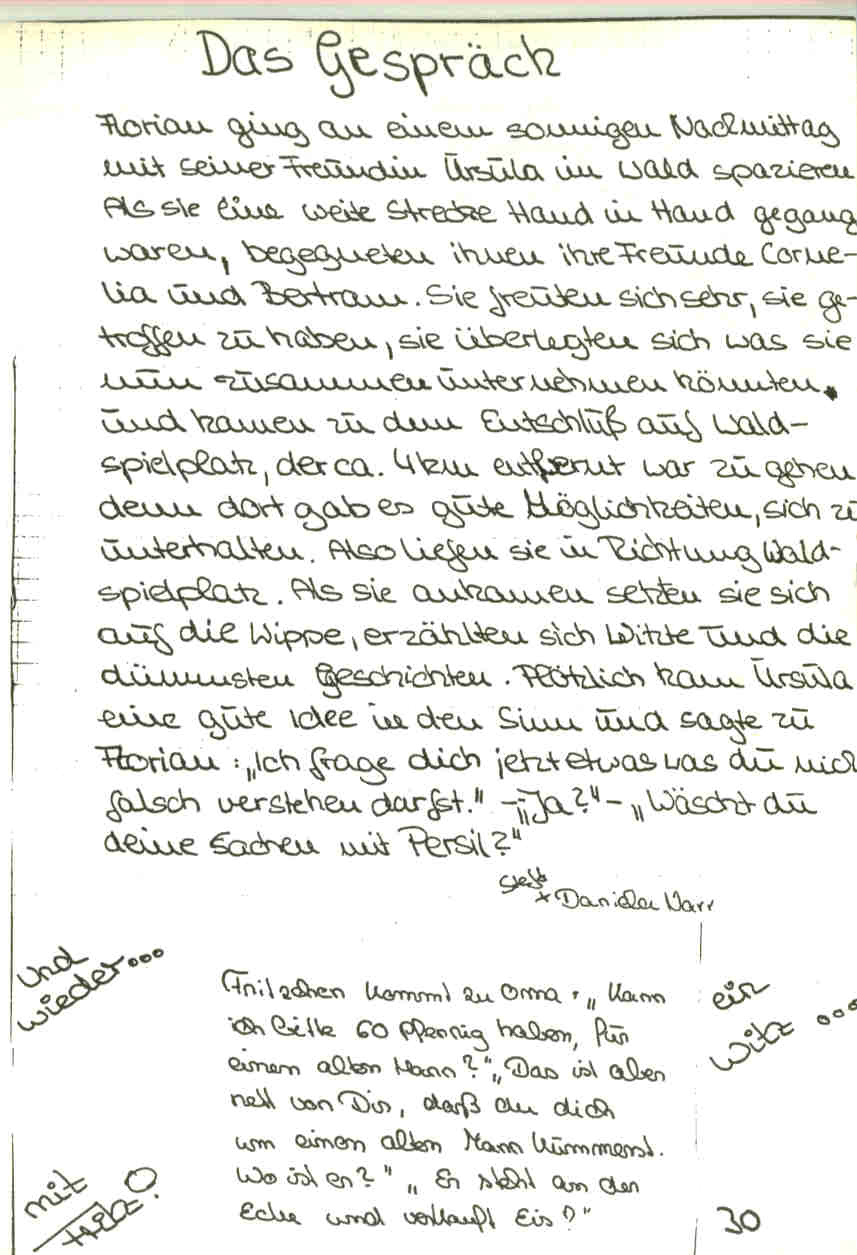 Das Gespräch
Florian ging an einem sonnigen Nachmittag
mit seiner Freundin Ursula im Wald spazieren
Als sie eine weite Strecke Hand in Hand gegang
waren, begegneten ihnen ihre Freunde Corne-
lia und Bertram. Sie freuten sich sehr, sie ge-
troffen zu haben, sie überlegten sich was sie
nun zusammen unternehmen könnten.
und kamen zu dem Entschluß auf Wald-
spielplatz, der ca. 4 km entfernt war zu gehen
denn dort gab es gute Möglichkeiten, sich zu
unterhalten. Also liefen sie in Richtung Wald-
spielplatz. Als sie ankamen setzten sie sich
auf die Wippe, erzählten sich Witze und die
dümmsten Geschichten. Plötzlich kam Ursula
eine gute Idee in den Sinn und sagte zu
Florian: „Ich frage dich jetzt etwas was du nich
falsch verstehen darfst." - „Ja?" - „Wäscht du
deine Sachen mit Persil?"
* Daniela Narr
und
wieder...
ein
witz ...
Fritzchen kommt zu Oma: „Kann
ich bitte 60 Pfennig haben, für
einen alten Mann?" „Das ist aber
nett von Dir, daß du dich
um einen alten Mann kümmerst.
Wo ist er?" „Er steht an der
Ecke und verkauft Eis?"
mit
30